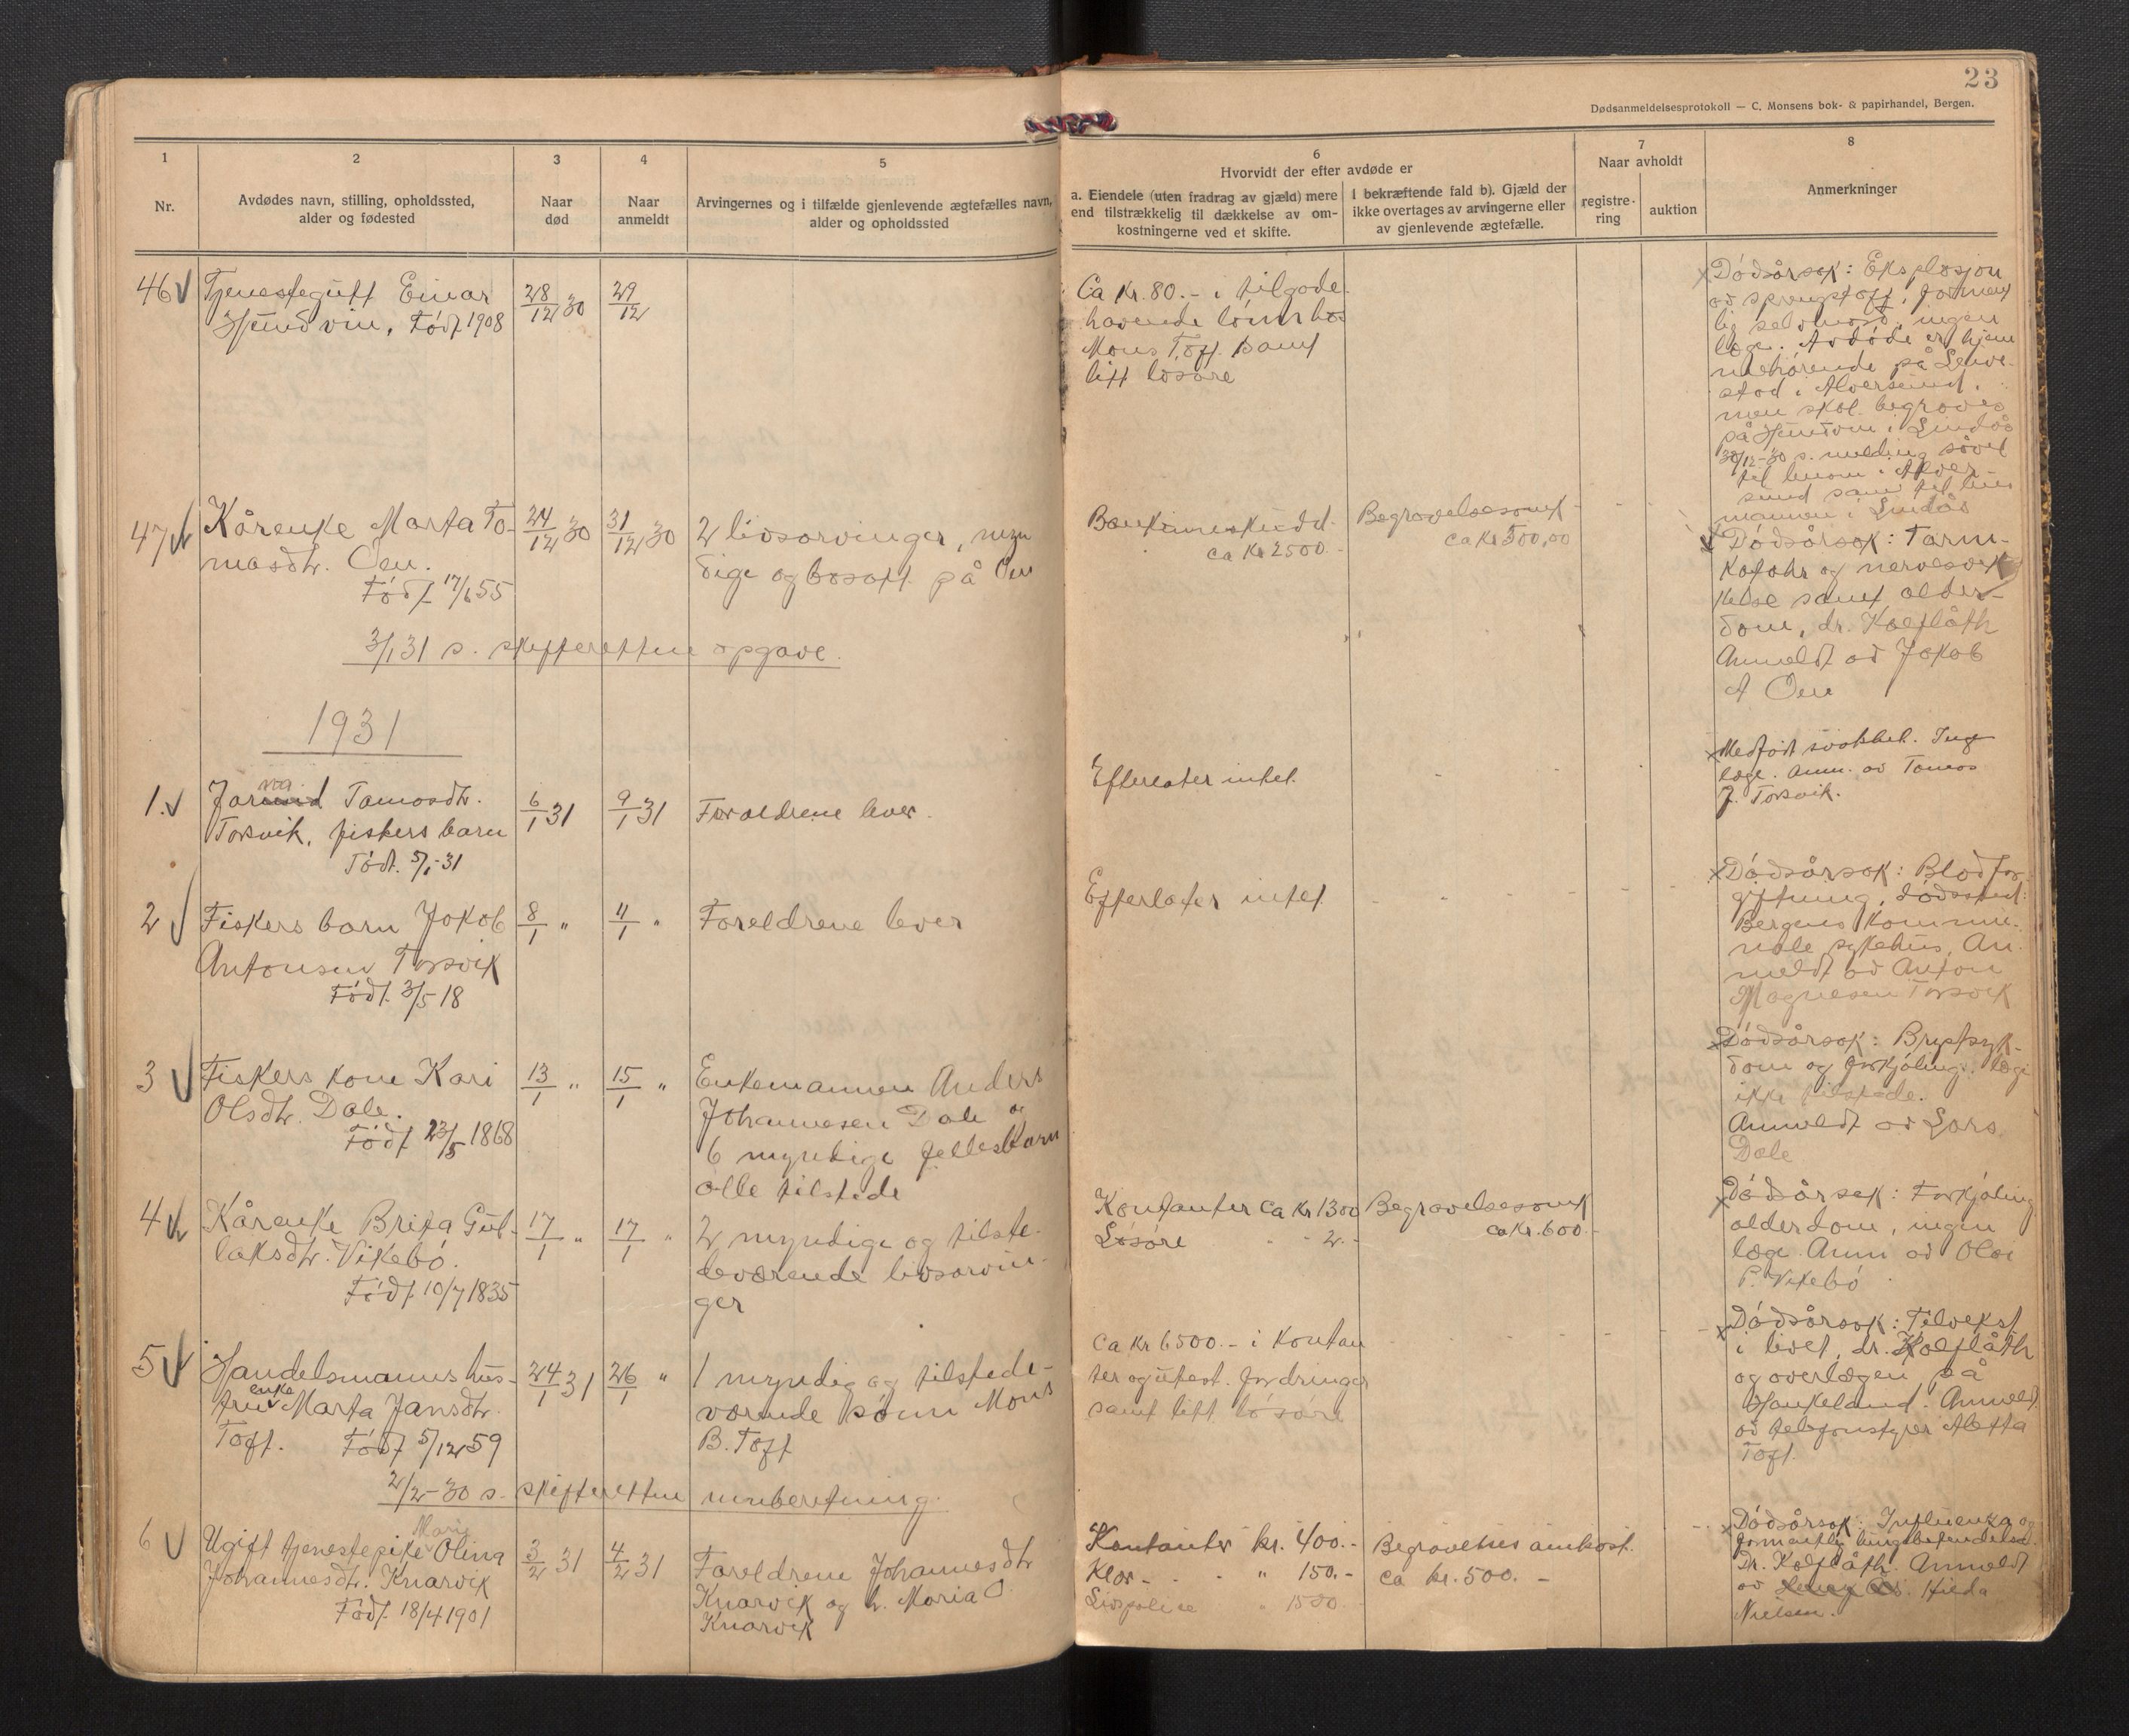 23
Dødsanmeldelsesprotokoll — C. Monsens bok- & papirhandel, Bergen.
1
Nr.
2
Avdødes navn, stilling, opholdssted,
alder og fødested
3
Naar
død
4
Naar
anmeldt
5
Arvingernes og i tilfælde gjenlevende ægtefælles navn,
alder og opholdssted
6
Hvorvidt der efter avdøde er
a. Eiendele (uten fradrag av gjæld) mere
end tilstrækkelig til dækkelse av om-
kostningerne ved et skifte.
I bekræftende fald b). Gjæld der
ikke overtages av arvingerne eller
av gjenlevende ægtefælle.
7
Naar avholdt
registre-
ring
auktion
8
Anmerkninger
46
Tjenestegutt Einar
Hundvin, Født 1908
28/12 30
29/12
Ca kr. 80.- i tilgode
havende lønn hos
Mons Toft samt
litt løsøre
Dødsårsak: Eksplosjon
av sprengstoff, forment
lig selvmord, ingen
læge. Avdøde er hjem
mehørende på
stad i Alversund,
men skal begraves
på Hundvin i Lindås
30/12-30 s. melding såvel
til i Alver-
sund som til lens
mannen i Lindås
47
Kårenke Marta To-
masdtr. Oen.
Født 17/6 55
24/12 30
31/12 30
2 livsarvinger, myn
dige og bosatt på Oen
Bankinnskudd
ca kr 2500.-
Begravelsesomk
ca kr 500,00
Dødsårsak: Tarm-
katahr og nervesvek
kelse samt alder-
dom, dr. Kolflåth
Anmeldt av Jakob
A Oen
3/1 31 s. skifteretten opgave.
1931
1.
Jorund Tomasdtr.
Torsvik, fiskers barn
Født. 5/1-31
6/1 31
9/1 31
Foreldrene lever.
Efterlater intet.
Medfødt svakhet. Inge
læge. Anm. av Tomas
J. Torsvik.
2
Fiskers barn Jakob
Antonsen Torsvik
Født. 3/5 18
8/1 "
11/1 "
Foreldrene lever
Efterlater intet
Dødsårsak: Blodfor
giftning, dødssted:
Bergens kommu-
nale sykehus, An-
meldt av Anton
Magnesen Torsvik
3
Fiskers kone Kari
Olsdtr. Dale.
Født 23/5 1868
13/1 "
15/1 "
Enkemannen Anders
Johannesen Dale og
6 myndige fellesbarn
alle tilstede
Dødsårsak: Brystsyk-
dom og forkjøling. læge
ikke tilstede.
Anmeldt av Lars
Dale
4
Kårenke Brita Gut-
laksdtr. Vikebø.
Født 10/7 1835
17/1 "
17/1 "
2 myndige og tilste-
deværende livsarvin-
ger
Kontanter ca kr 1300
Løsøre " " 2.-
Begravelsesomk
ca kr. 600.-
Dødsårsak: Forkjøling
alderdom, ingen
læge. Anm av Olai
P. Vikebø
5
Handelsmanns hus-
tru enke Marta Jansdtr.
Toft. Født 5/12 59
24/1 31
26/1 "
1 myndig og tilstede-
værende sønn Mons
B. Toft
Ca kr 6500.- i kontan
ter og utest. fordringer
samt litt løsøre
Dødsårsak: Tilvekst
i livet, dr. Kolflåth
og overlægen på
Haukeland. Anmeldt
av telefonstyrer Aletta
Toft.
2/2-30 s. skifteretten innberetning.
6
Ugift tjenestepike Marie Olina
Johannesdtr. Knarvik
Født 18/4 1901
3/2 31
4/2 31
Foreldrene Johannes
Knarvik og h. Maria O.
Knarvik
Kontanter kr. 400.-
Klær - - - " 150.-
Livspolise " 1500.-
Begravelses omkost.
ca kr. 500. -
Dødsårsak: Influenka og
formentlig lungebetendelse.
Dr. Kolflåth. Anmeldt
av Hilda
Nielsen.